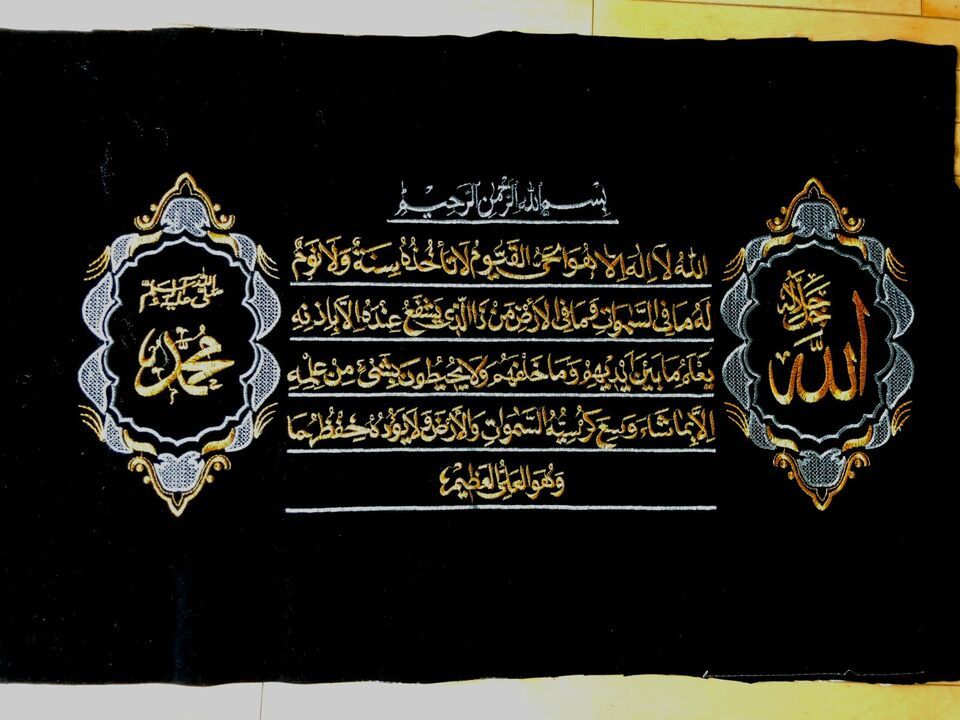 بسم الله الرحمن الرحيم
الله لا اله الا هو الحي القيوم لا تأخذه سنة ولا نوم
له ما في السموات وما في الأرض من ذا الذي يشفع عنده الا باذنه
يعلم ما بين أيديهم وما خلفهم ولا يحيطون بشئ من علمه
الا بما شاء وسع كرسيه السموات والأرض ولا يؤده حفظهما
وهو العلي العظيم
جل جلاله
الله
صلى الله عليه وسلم
محمد